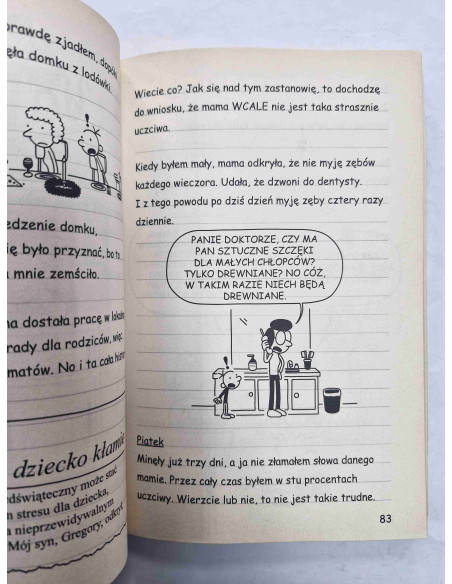 rawdę zjadłem, dopóki
ęła domku z lodówki.
edzenie domku,
ię było przyznać, bo ta
a mnie zemściło.
na dostała pracę w lokaln
rady dla rodziców, więc
matów. No i ta cała histo
dziecko kłamie
edświąteczny może stać
m stresu dla dziecka,
a nieprzewidywalnym
Mój syn, Gregory, odkrył
Wiecie co? Jak się nad tym zastanowię, to dochodzę
do wniosku, że mama WCALE nie jest taka strasznie
uczciwa.
Kiedy byłem mały, mama odkryła, że nie myję zębów
każdego wieczora. Udała, że dzwoni do dentysty.
I z tego powodu po dziś dzień myję zęby cztery razy
dziennie.
PANIE DOKTORZE, CZY MA
PAN SZTUCZNE SZCZĘKI
DLA MAŁYCH CHŁOPCÓW?
TYLKO DREWNIANE? NO CÓŻ,
W TAKIM RAZIE NIECH BĘDĄ
DREWNIANE.
Piątek
Minęły już trzy dni, a ja nie złamałem słowa danego
mamie. Przez cały czas byłem w stu procentach
uczciwy. Wierzcie lub nie, to nie jest takie trudne.
83